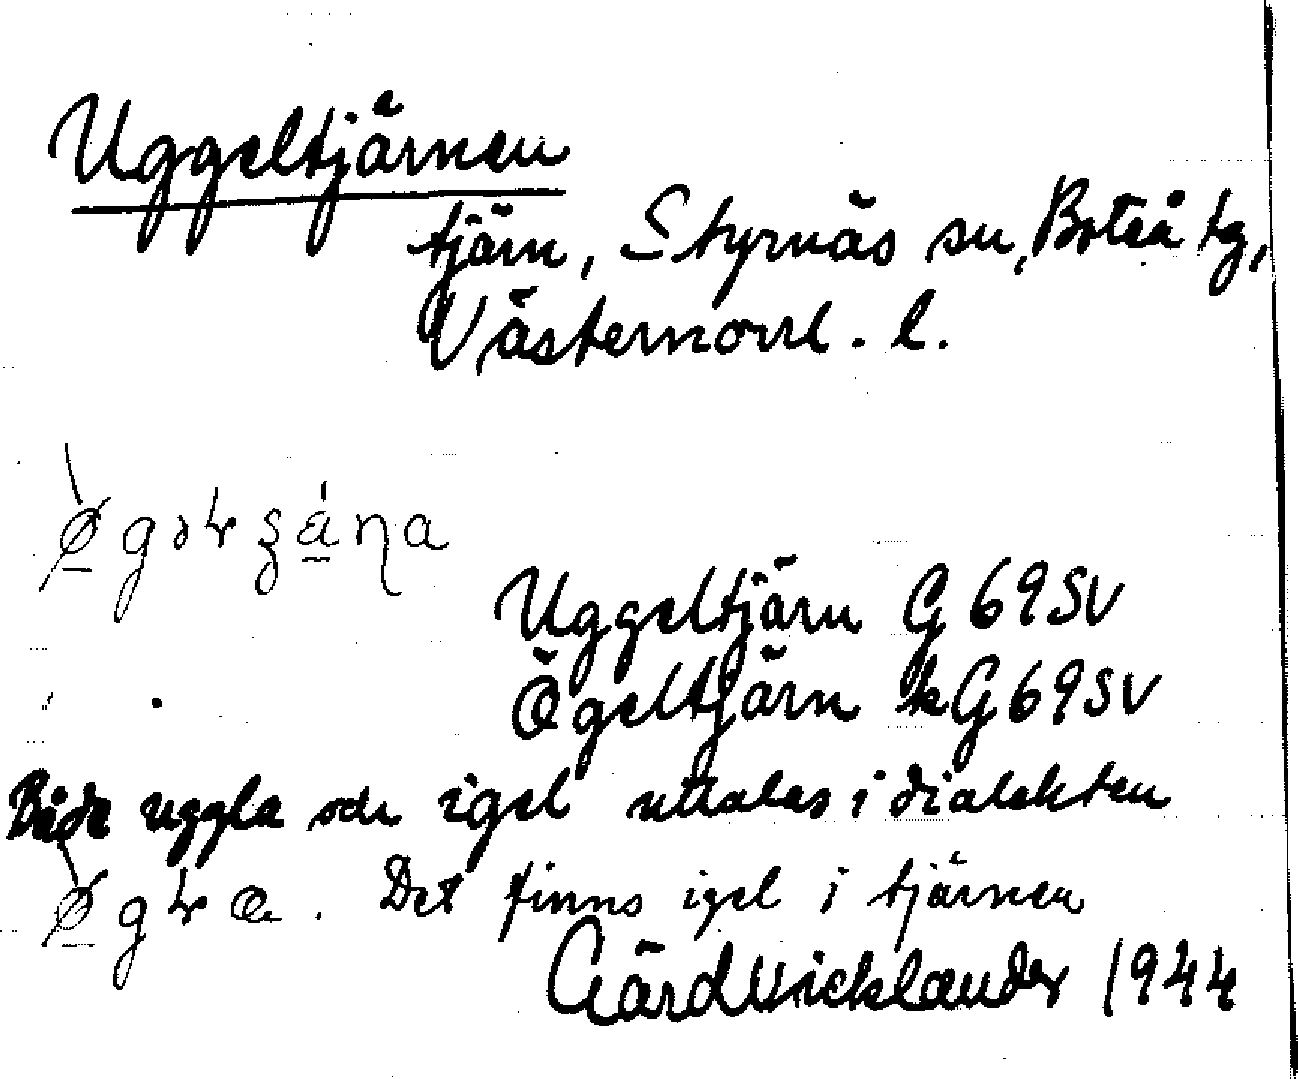 Uggeltjärnen
tjärn, Styrnäs sn, Boteå tg,
Västernorrl. l.
Uggeltjärn G 69 SV
Ögeltjärn kG 69 SV
Både uggla och igel uttalas i dialekten
Det finns igel i tjärnen
Gärd Wicklander 1944